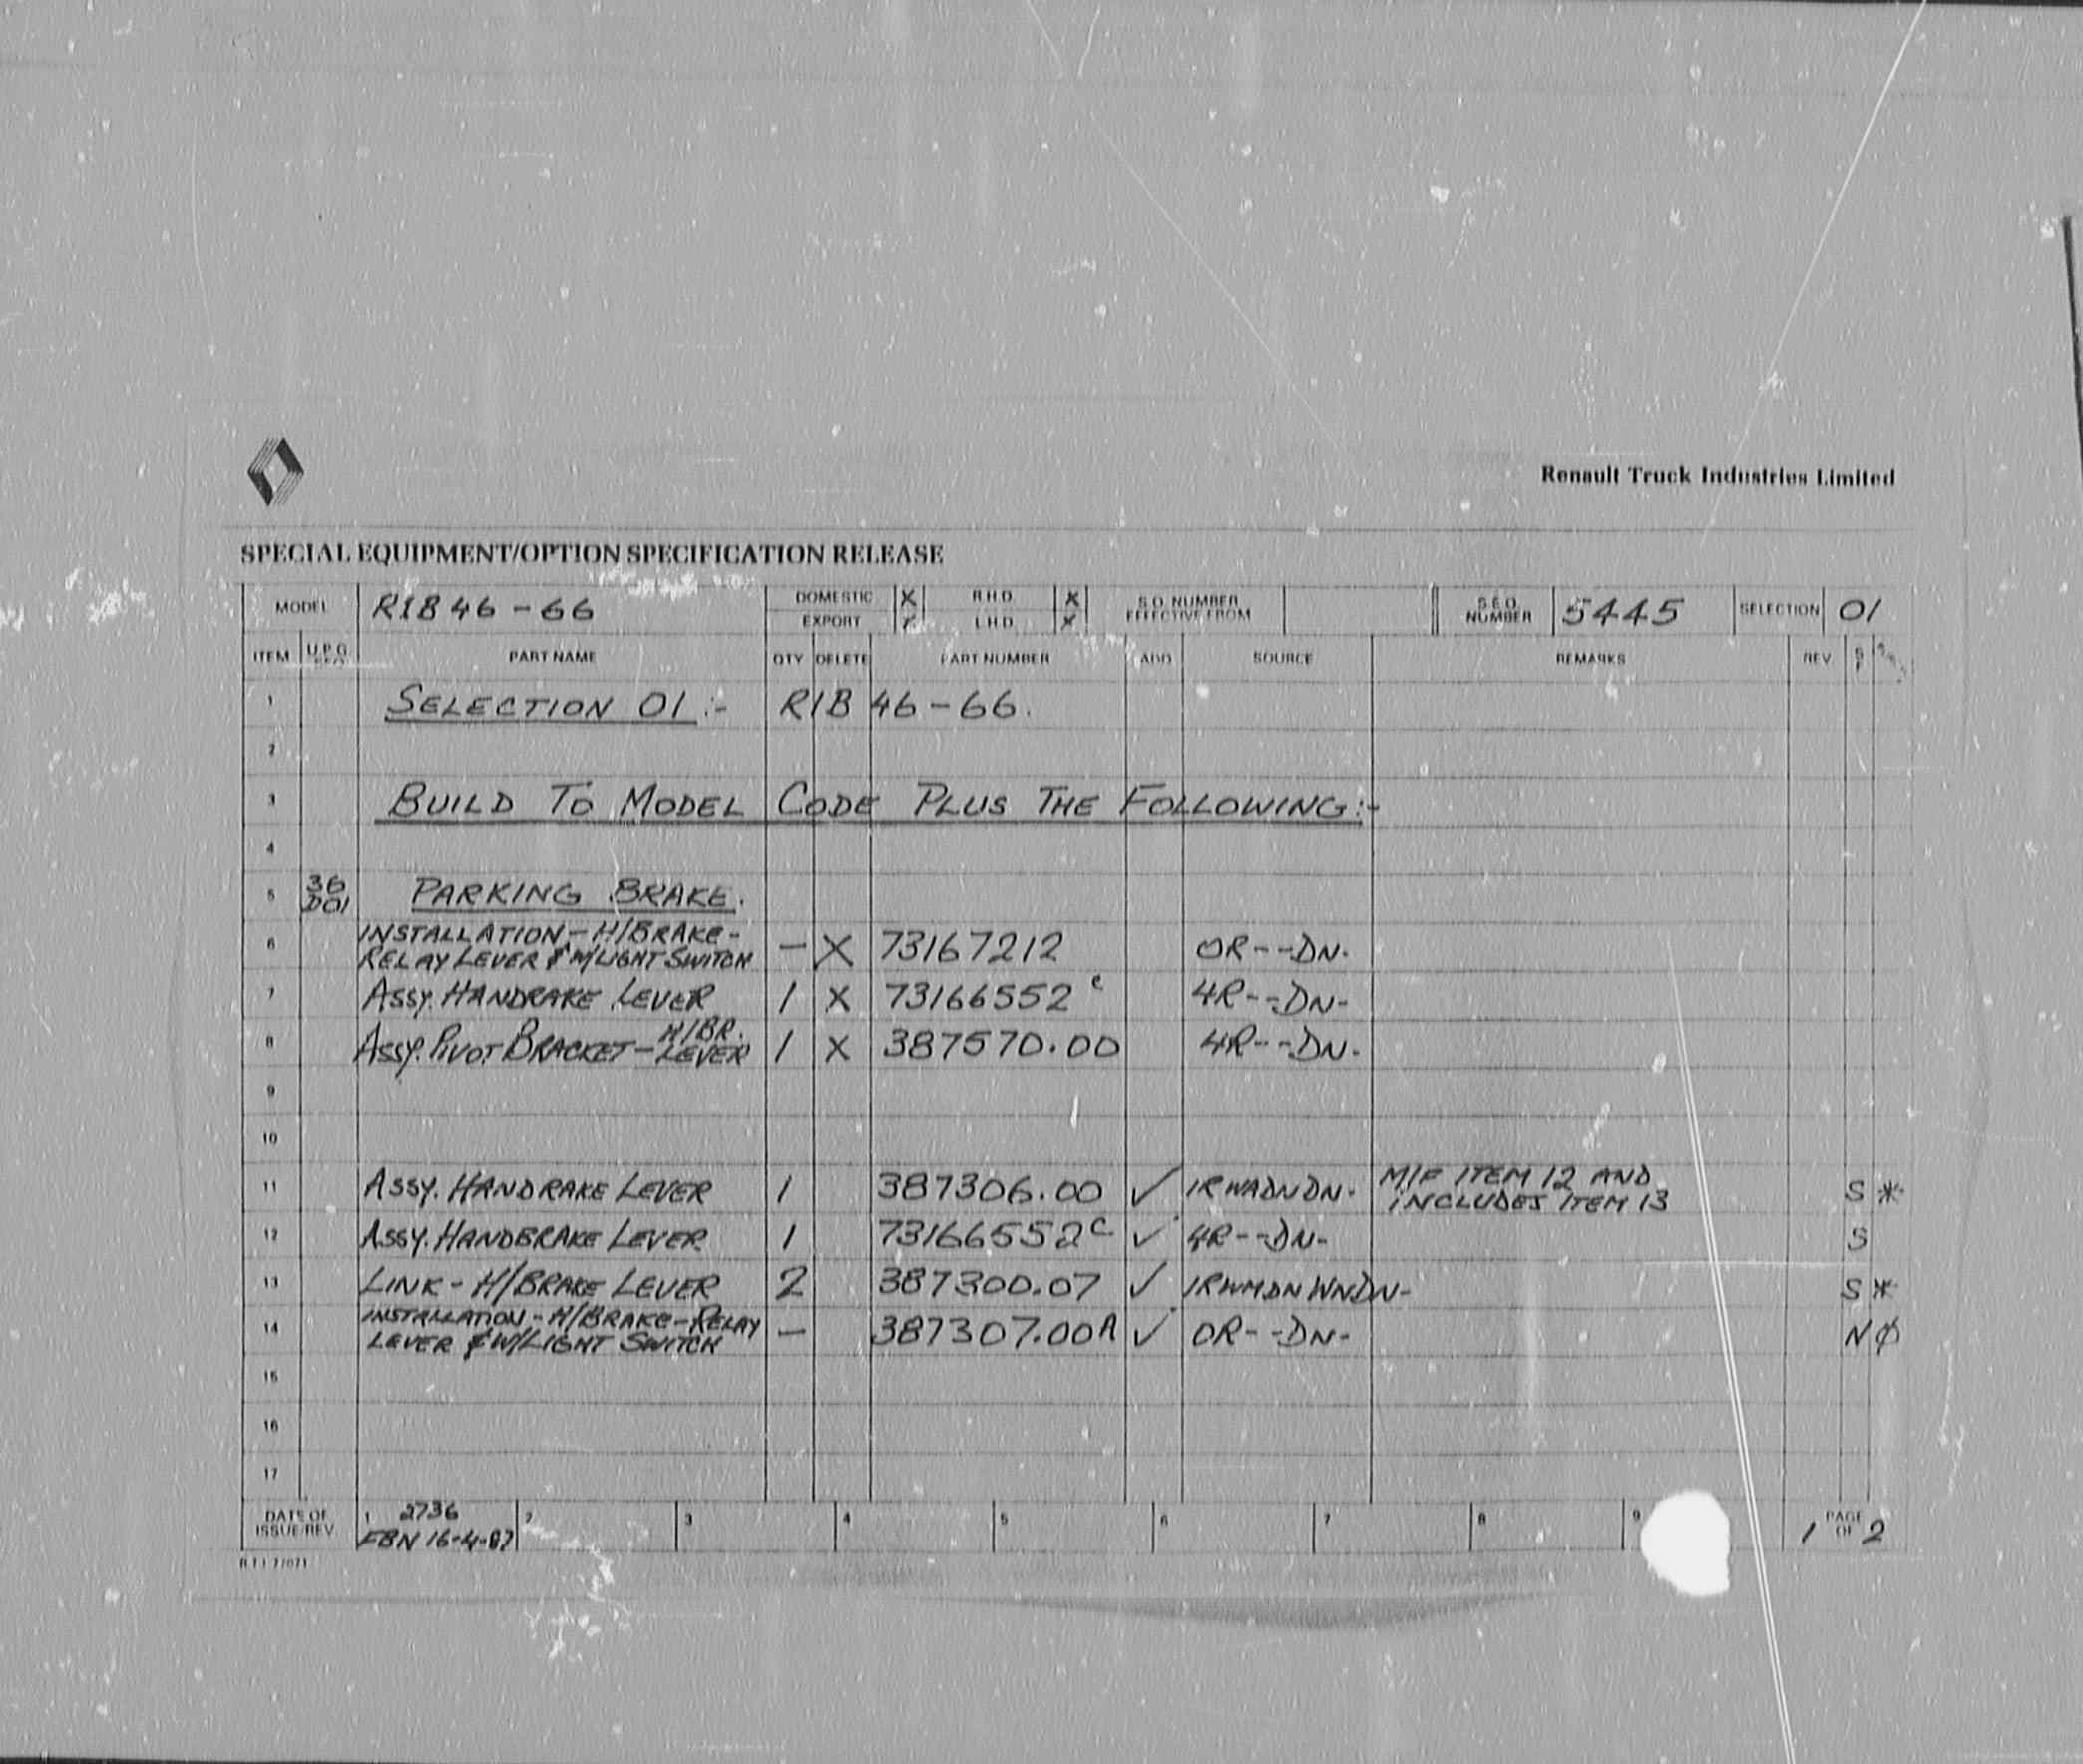 Renault Truck Industries Limited
SPECIAL EQUIPMENT/OPTION SPECIFICATION RELEASE
MODEL R1B 46-66 DOMESTIC X R.H.D. X S.O. NUMBER EFFECTIVE FROM S.E.O. NUMBER 5445 SELECTION 01
EXPORT L.H.D. X
ITEM U.P.G. PART NAME QTY DELETE PART NUMBER ADD SOURCE REMARKS REV
1 SELECTION 01:- R1B 46-66.
2
3 BUILD TO MODEL CODE PLUS THE FOLLOWING:-
4
5 36 D01 PARKING BRAKE.
6 INSTALLATION-H/BRAKE- RELAY LEVER & W/LIGHT SWITCH - X 73167212 0R--DN-
7 ASSY. HANDRAKE LEVER 1 X 73166552 C 4R--DN-
8 ASSY. PIVOT BRACKET-H/BR. LEVER 1 X 387570.00 4R--DN-
9
10
11 ASSY. HANDRAKE LEVER 1 387306.00 ✓ 1RWADNDN- M/F ITEM 12 AND INCLUDES ITEM 13 S *
12 ASSY. HANDBRAKE LEVER 1 73166552C ✓ 4R--DN- S
13 LINK - H/BRAKE LEVER 2 387300.07 ✓ 1RWMDNWNDN- S *
14 INSTALLATION-H/BRAKE-RELAY LEVER & W/LIGHT SWITCH - 387307.00A ✓ 0R--DN- N Ø
15
16
17
DATE OF ISSUE/REV. 1 2736 2 3 4 5 6 7 8 9 1 PAGE OF 2
FBN 16-4-87